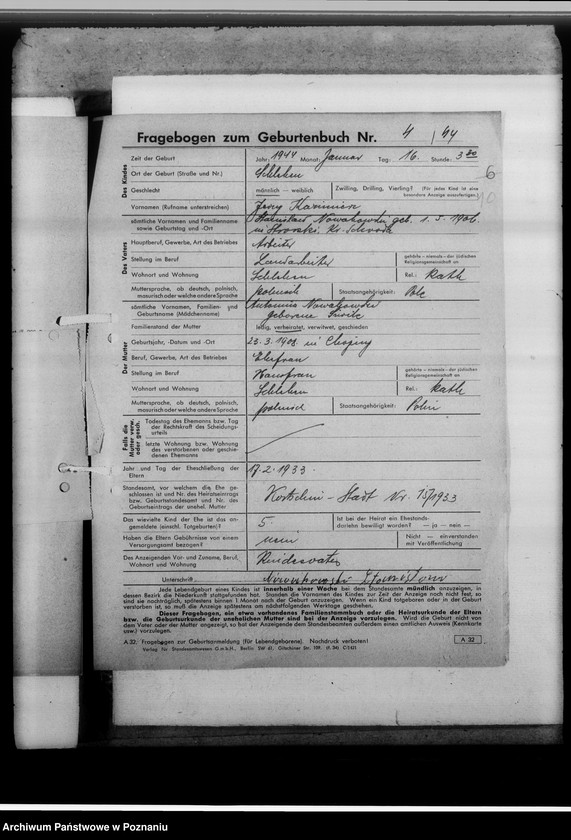 Fragebogen zum Geburtenbuch Nr. 4 / 44
Des Kindes
Zeit der Geburt Jahr: 1944 Monat: Januar Tag: 16. Stunde: 3 30
Ort der Geburt (Straße und Nr.) Schlehen
6
Geschlecht männlich — weiblich Zwilling, Drilling, Vierling? (Für jedes Kind ist eine besondere Anzeige auszufertigen.)
Vornamen (Rufname unterstreichen) Jerzy Kazimierz
Des Vaters
sämtliche Vornamen und Familienname Stanislaus Nowakowski, geb. 1. 5. 1906.
sowie Geburtstag und -Ort in Kr. Schroda
Hauptberuf, Gewerbe, Art des Betriebes Arbeiter
Stellung im Beruf Landarbeiter gehörte – niemals – der jüdischen Religionsgemeinschaft an
Wohnort und Wohnung Schlehen Rel.: Kath
Muttersprache, ob deutsch, polnisch, masurisch oder welche andere Sprache polnisch Staatsangehörigkeit: Pole
Der Mutter
sämtliche Vornamen, Familien- und Antonina Nowakowski
Geburtsname (Mädchenname) geborene
Familienstand der Mutter ledig, verheiratet, verwitwet, geschieden
Geburtsjahr, -Datum und -Ort 23. 3. 1908 in
Beruf, Gewerbe, Art des Betriebes Ehefrau
Stellung im Beruf Hausfrau gehörte – niemals – der jüdischen Religionsgemeinschaft an
Wohnort und Wohnung Schlehen Rel.: Kath
Muttersprache, ob deutsch, polnisch, masurisch oder welche andere Sprache polnisch Staatsangehörigkeit: Polin
Falls die Mutter verw. oder gesch.
Todestag des Ehemanns bzw. Tag der Rechtskraft des Scheidungsurteils
letzte Wohnung bzw. Wohnung des verstorbenen oder geschiedenen Ehemanns
Jahr und Tag der Eheschließung der Eltern 17. 2. 1933.
Standesamt, vor welchem die Ehe geschlossen ist und Nr. des Heiratseintrags bzw. Geburtsstandesamt und Nr. des Geburtseintrags der unehel. Mutter Kostschin – Stadt Nr. 15/1933
Das wievielte Kind der Ehe ist das angemeldete (einschl. Totgeburten)? 5. Ist bei der Heirat ein Ehestandsdarlehn bewilligt worden? — ja — nein —
Haben die Eltern Gebührnisse von einem Versorgungsamt bezogen? nein Nicht — einverstanden mit Veröffentlichung
Des Anzeigenden Vor- und Zuname, Beruf, Wohnort und Wohnung Kindesvater
Unterschrift: Nowakowski
Jede Lebendgeburt eines Kindes ist innerhalb einer Woche bei dem Standesamte mündlich anzuzeigen, in
dessen Bezirk die Niederkunft stattgefunden hat. Standen die Vornamen des Kindes zur Zeit der Anzeige noch nicht fest, so
sind sie nachträglich, spätestens binnen 1 Monat nach der Geburt anzuzeigen. Wenn ein Kind totgeboren oder in der Geburt
verstorben ist, so muß die Anzeige spätestens am nächstfolgenden Werktage geschehen.
Dieser Fragebogen, ein etwa vorhandenes Familienstammbuch oder die Heiratsurkunde der Eltern
bzw. die Geburtsurkunde der unehelichen Mutter sind bei der Anzeige vorzulegen. Wird die Geburt nicht von
dem Vater oder der Mutter angezeigt, so hat der Anzeigende dem Standesbeamten außerdem einen amtlichen Ausweis (Kennkarte
usw.) vorzulegen.
A 32/ Fragebogen zur Geburtsanmeldung (für Lebendgeborene). Nachdruck verboten! A 32
Verlag für Standesamtswesen G.m.b.H., Berlin SW 61, Gitschiner Str. 109.
Archiwum Państwowe w Poznaniu